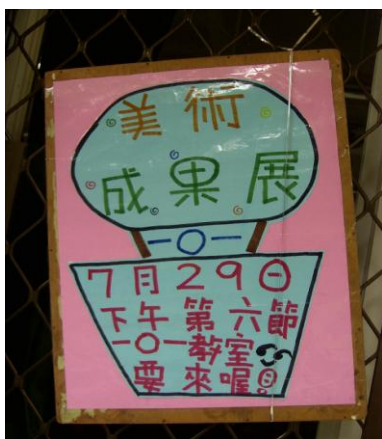 美術
成果展
一〇一
7月29日
下午第六節
一〇一教室
要來喔!